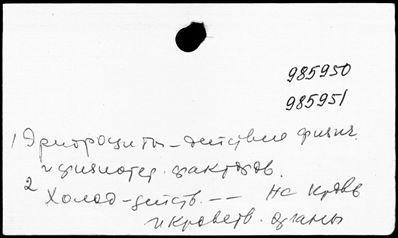 985950
985951
1 Эритроциты – действие физич.
и физиотер. факторов.
2 Холод – действ. –– на кровь
и кроветв. органы